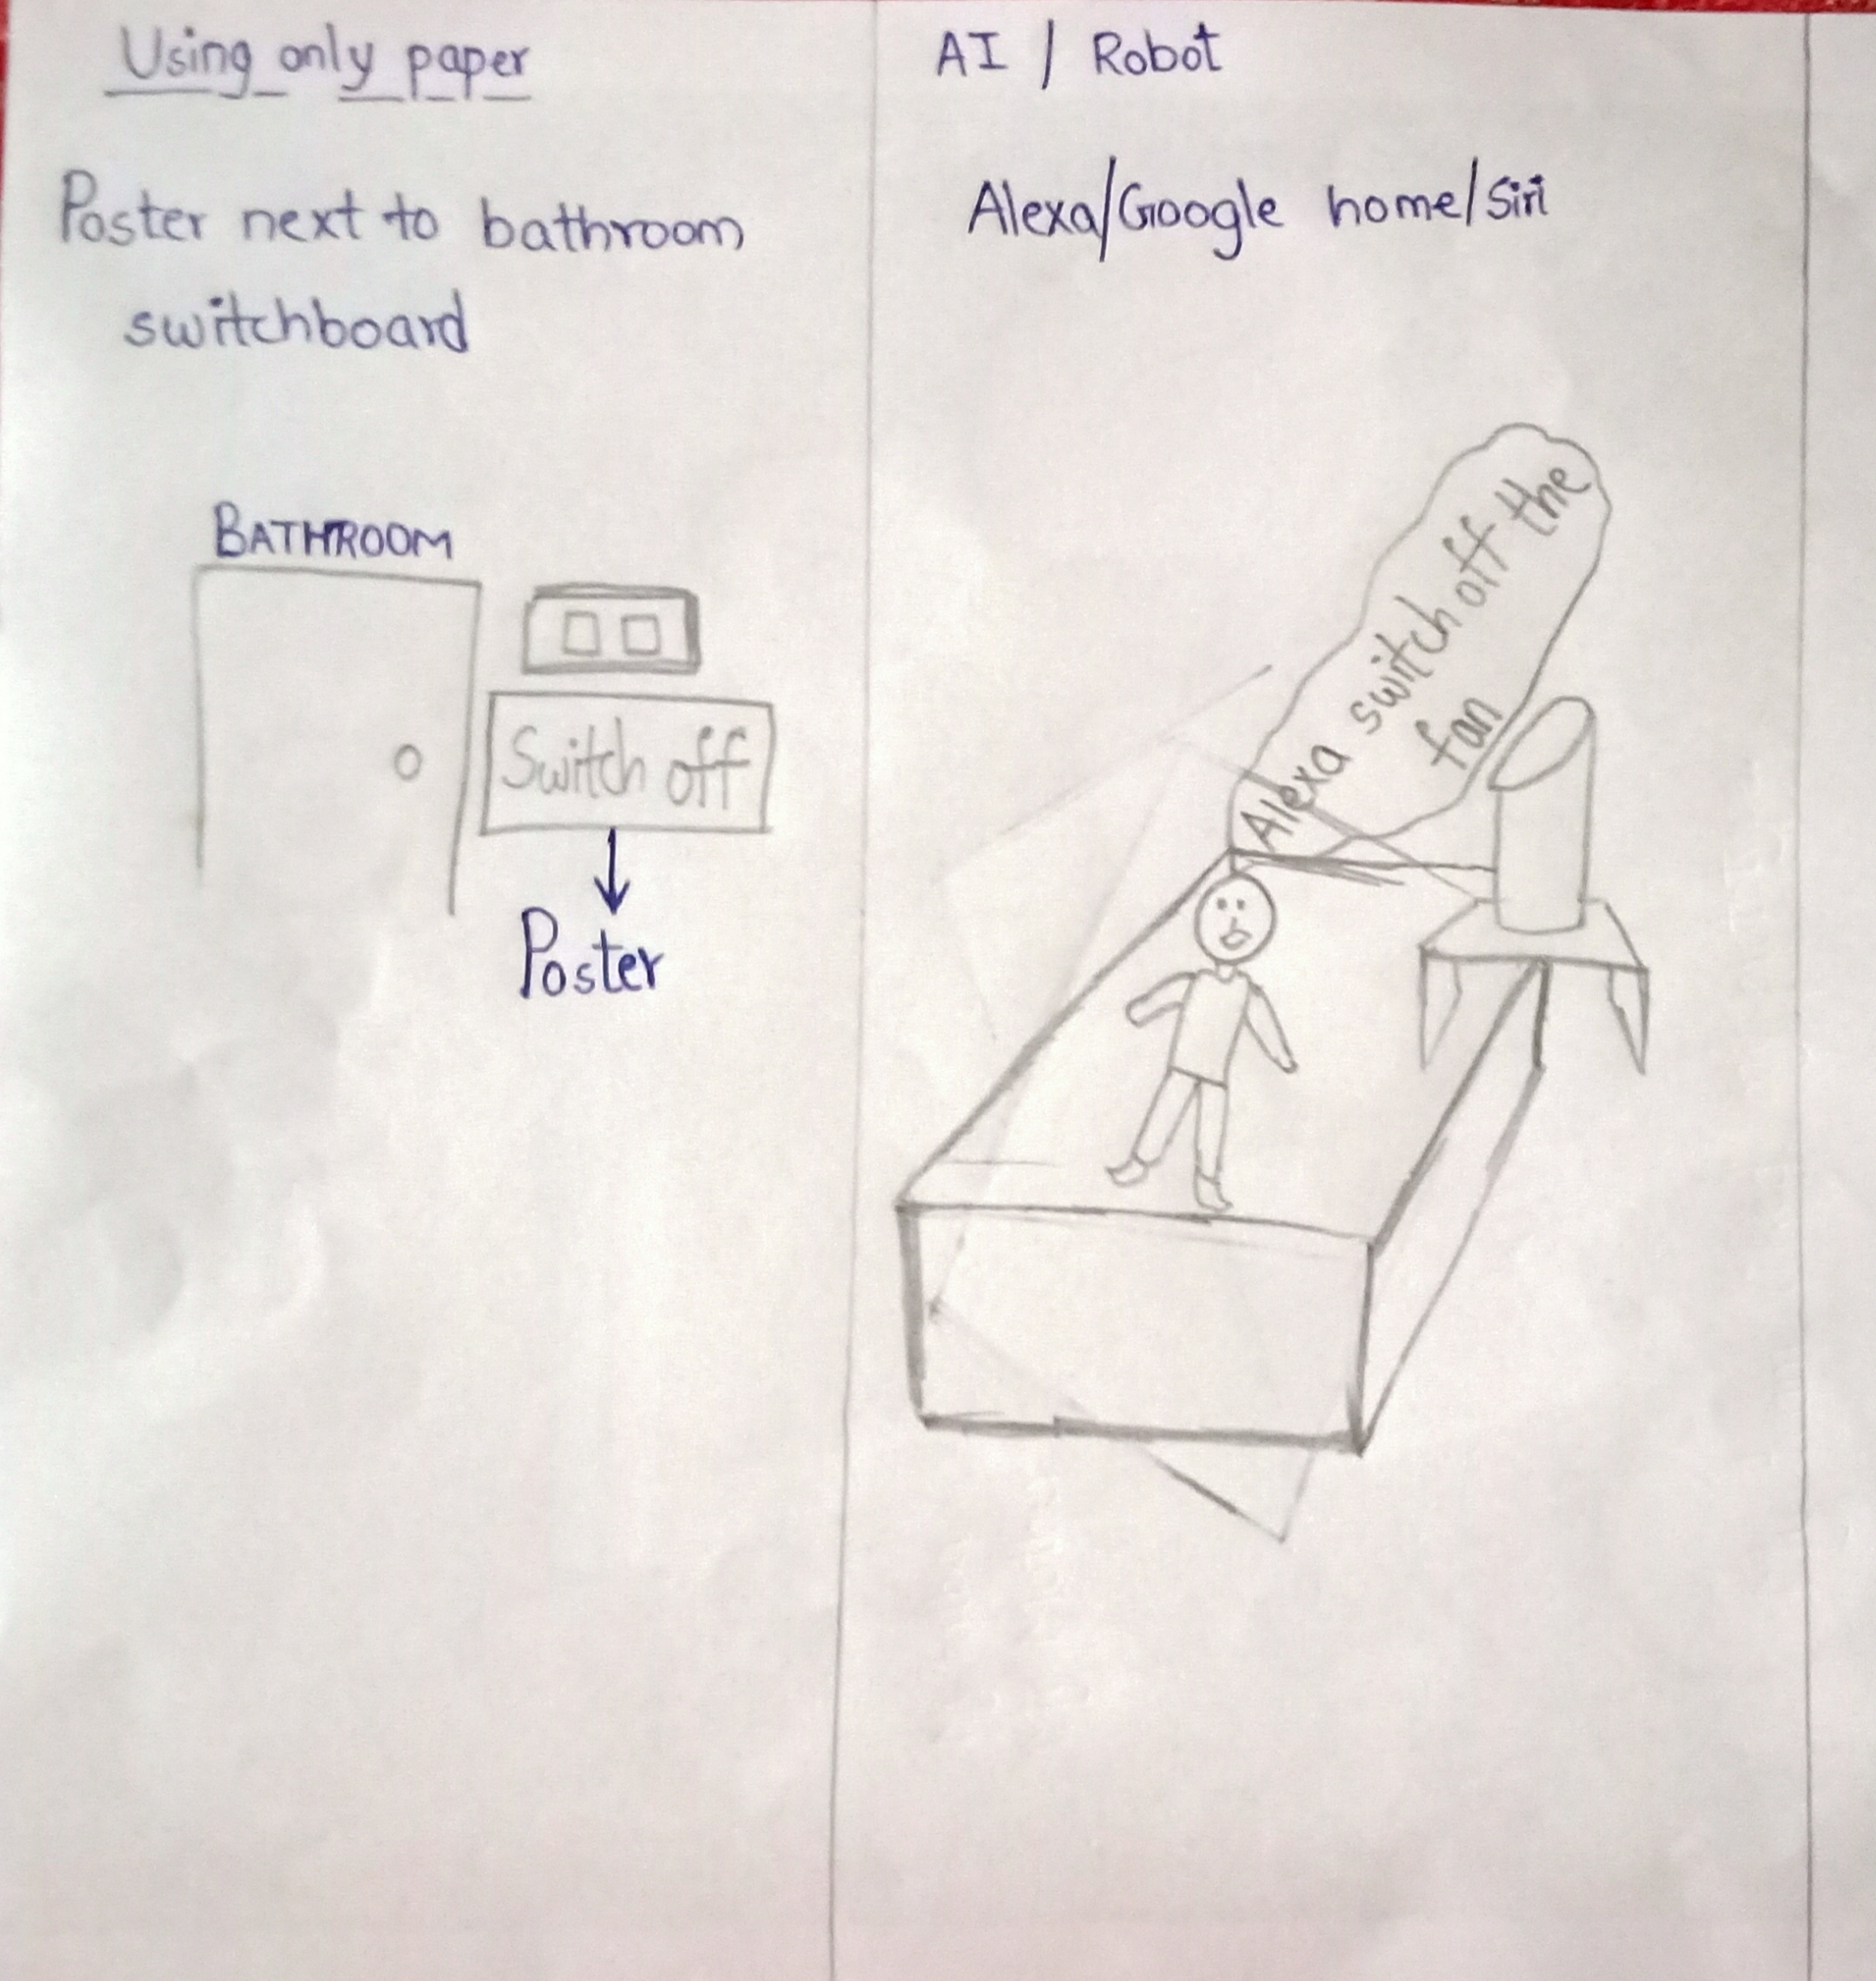 Using only paper
Poster next to bathroom
switchboard
BATHROOM
Switch off
Poster
AI / Robot
Alexa/Google home/Siri
Alexa switch off the
fan